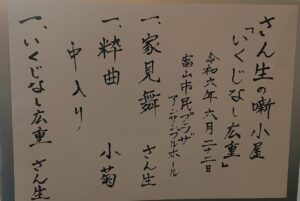 さん生の噺小屋
「いくじなし広重」
令和六年六月二十二日
富山市民プラザ
アンサンブルホール
一、家見舞　さん生
一、粋曲　小菊
中入り
一、いくじなし広重　さん生